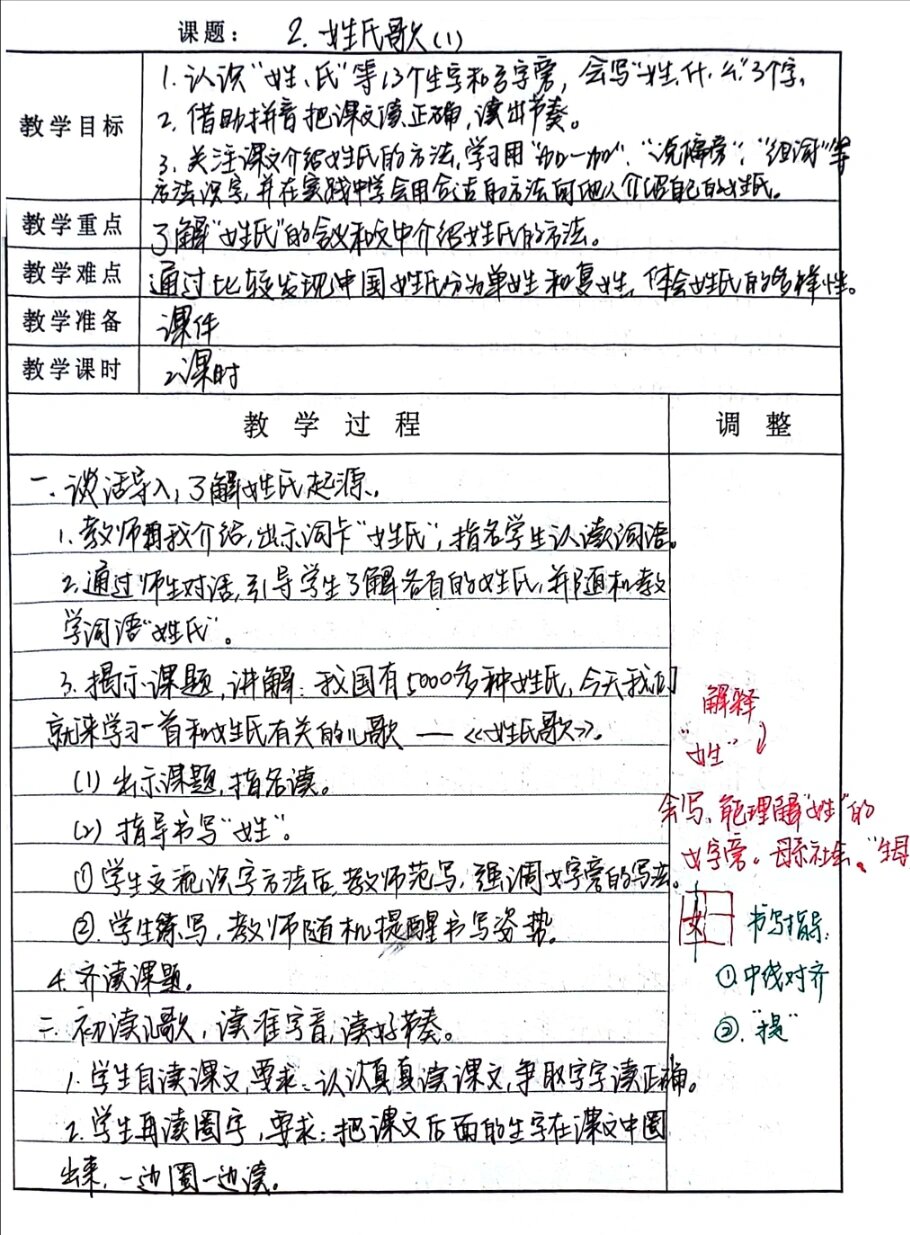 课题： 2. 姓氏歌(1)
教学目标
1. 认识"姓、氏"等13个生字和弓字旁，会写"姓、什、么"3个字。
2. 借助拼音把课文读正确，读出节奏。
3. 关注课文介绍姓氏的方法，学习用"加一加"、"说偏旁"、"组词"等
方法识字，并在实践中学会用合适的方法向他人介绍自己的姓氏。
教学重点
了解"姓氏"的含义和文中介绍姓氏的方法。
教学难点
通过比较发现中国姓氏分为单姓和复姓，体会姓氏的多样性。
教学准备
课件
教学课时
2课时
教学过程
调整
一、谈话导入，了解姓氏起源。
1. 教师自我介绍，出示词卡"姓氏"，指名学生认读词语。
2. 通过师生对话，引导学生了解各自的姓氏，并随机教
学词语"姓氏"。
3. 揭示课题，讲解：我国有5000多种姓氏，今天我们
就来学习一首和姓氏有关的儿歌——《姓氏歌》。
(1) 出示课题，指名读。
(2) 指导书写"姓"。
①学生交流识字方法后，教师范写，强调女字旁的写法。
②学生练写，教师随机提醒书写姿势。
4. 齐读课题。
二、初读儿歌，读准字音，读好节奏。
1. 学生自读课文，要求：认认真真读课文，争取字字读正确。
2. 学生再读圈字，要求：把课文后面的生字在课文中圈
出来，一边圈一边读。
解释
"姓"
会写、能理解"姓"的
女字旁。母系社会、"生母
女
书写指导：
①中线对齐
②"提"